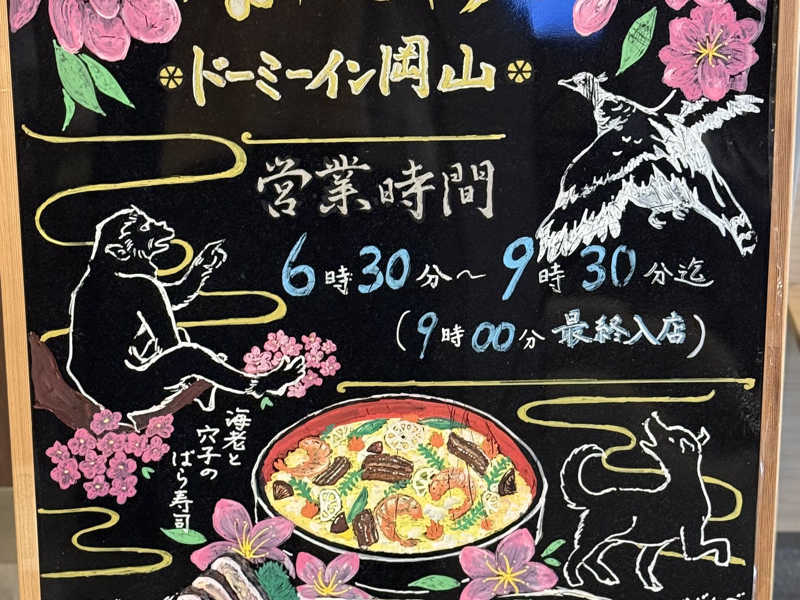 ドーミーイン岡山
営業時間
6時30分～9時30分迄
(9時00分 最終入店)
海老と
穴子の
ばら寿司